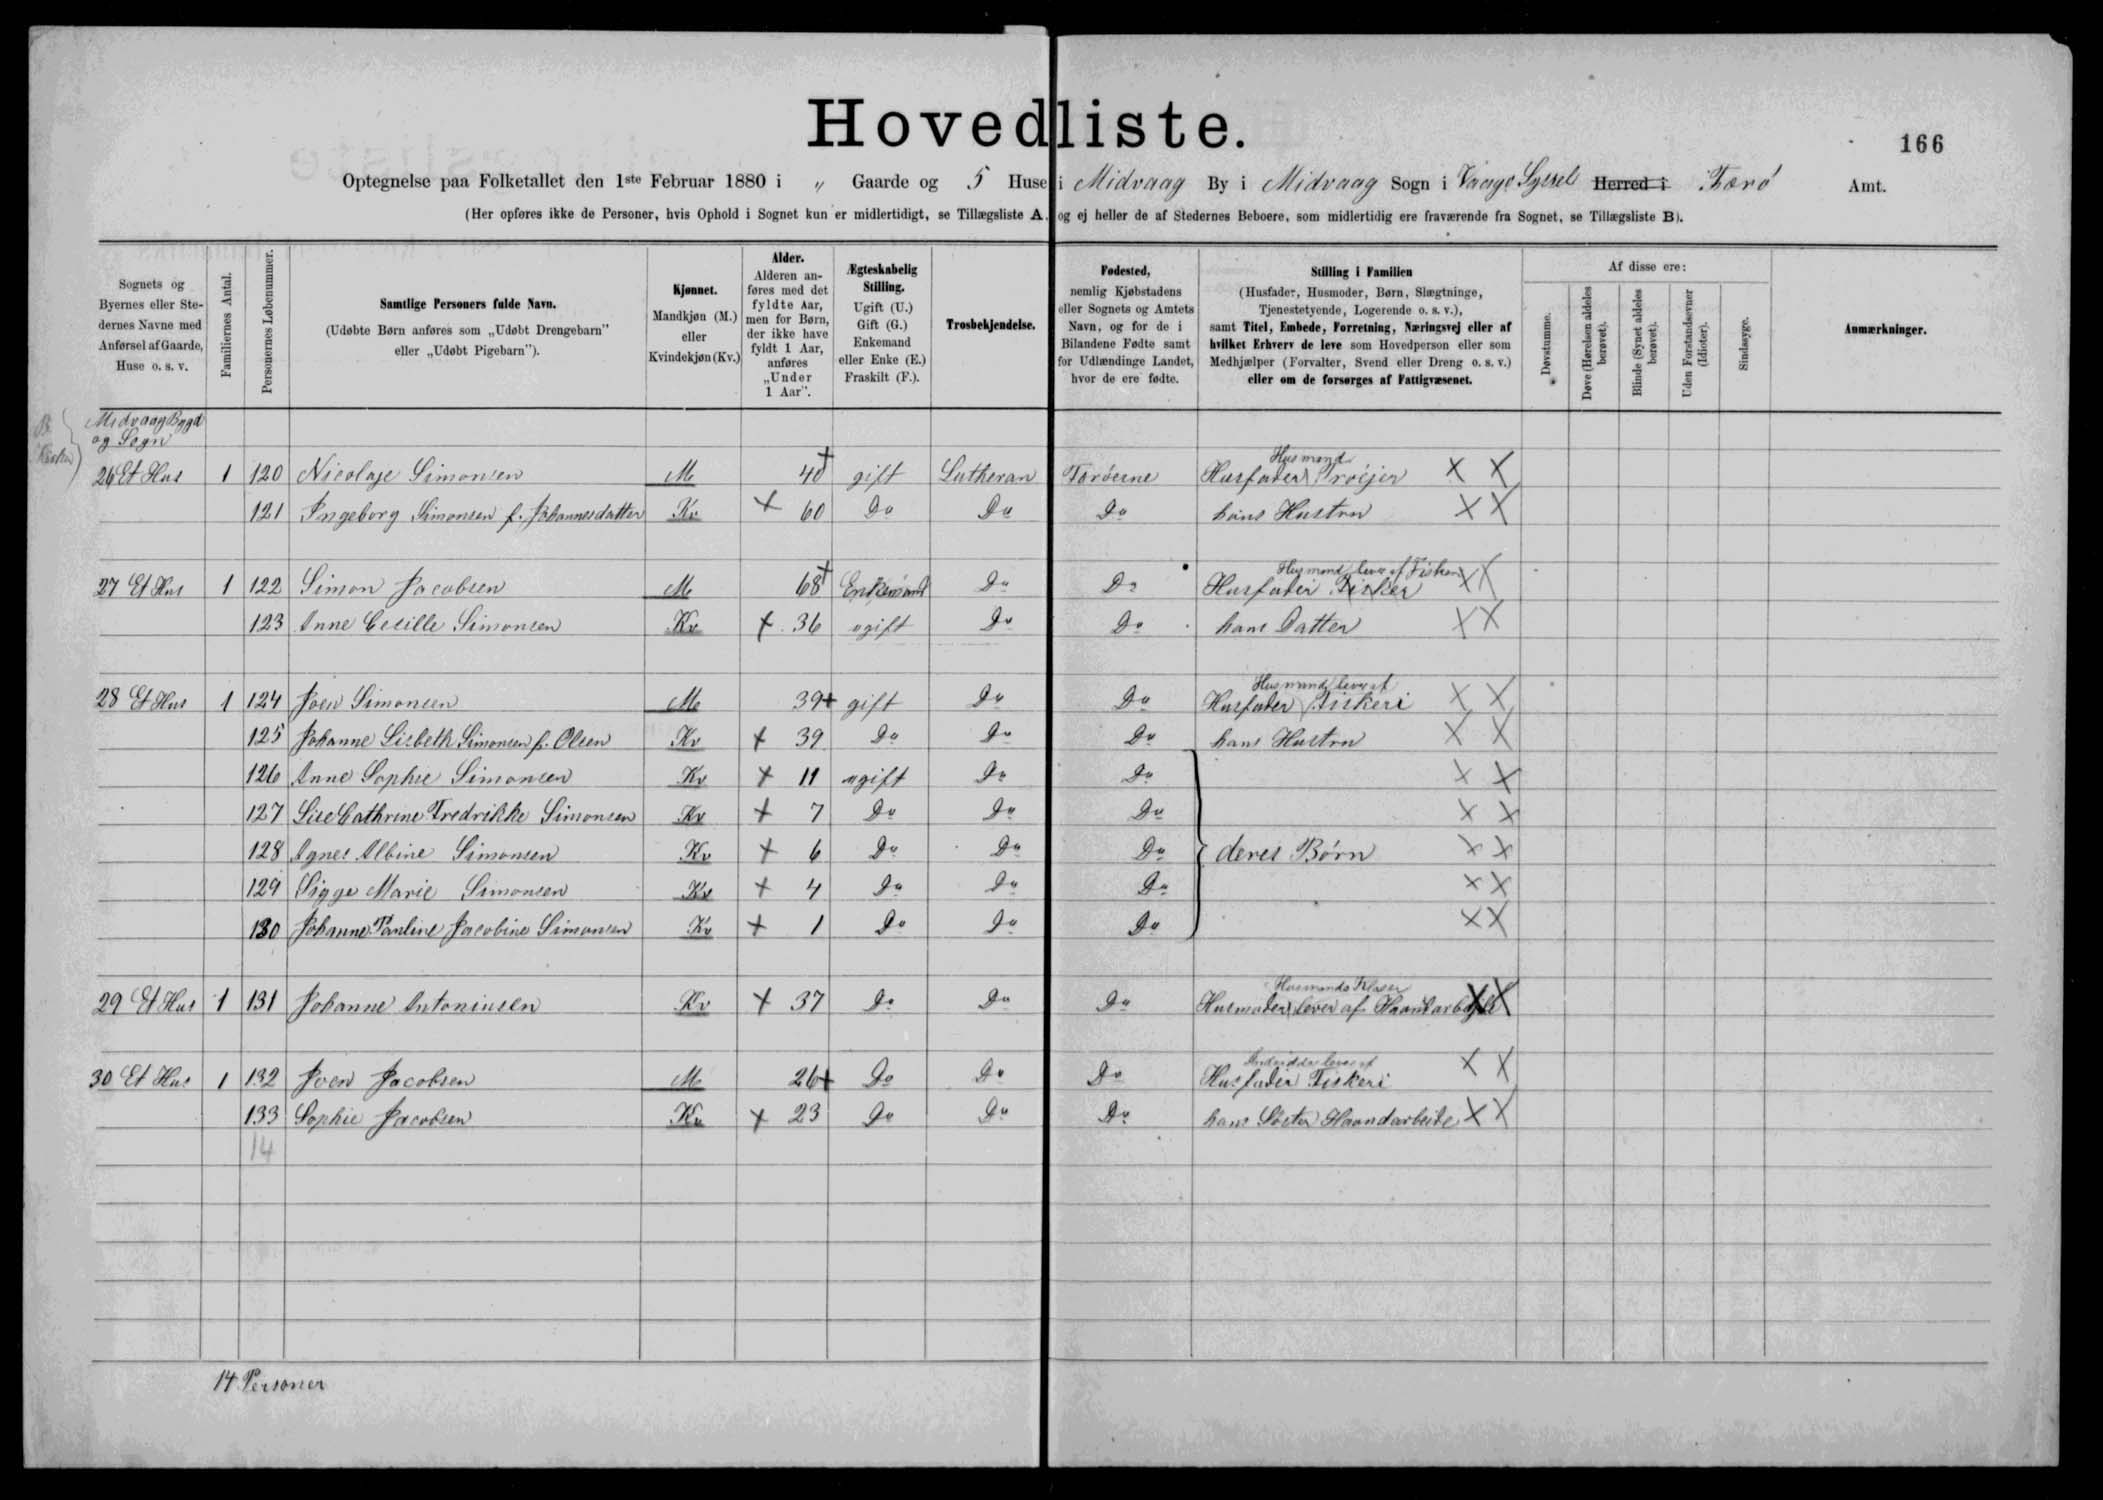 Hovedliste.
166
Optegnelse paa Folketallet den 1ste Februar 1880 i „ Gaarde og 5 Huse i Midvaag By i Midvaag Sogn i Vaagø Syssel Herred i Færø Amt.
(Her opføres ikke de Personer, hvis Ophold i Sognet kun er midlertidigt, se Tillægsliste A. og ej heller de af Stedernes Beboere, som midlertidig ere fraværende fra Sognet, se Tillægsliste B).
Sognets og Byernes eller Stedernes Navne med Anførsel af Gaarde, Huse o. s. v.
Familiernes Antal.
Personernes Løbenummer.
Samtlige Personers fulde Navn.
(Udøbte Børn anføres som „Udøbt Drengebarn" eller „Udøbt Pigebarn").
Kjønnet.
Mandkjøn (M.) eller Kvindekjøn (Kv.)
Alder.
Alderen anføres med det fyldte Aar, men for Børn, der ikke have fyldt 1 Aar, anføres „Under 1 Aar".
Ægteskabelig Stilling.
Ugift (U.) Gift (G.) Enkemand eller Enke (E.) Fraskilt (F.).
Trosbekjendelse.
Fødested,
nemlig Kjøbstadens eller Sognets og Amtets Navn, og for de i Bilandene Fødte samt for Udlændinge Landet, hvor de ere fødte.
Stilling i Familien
(Husfader, Husmoder, Børn, Slægtninge, Tjenestetyende, Logerende o. s. v.), samt Titel, Embede, Forretning, Næringsvej eller af hvilket Erhverv de leve som Hovedperson eller som Medhjælper (Forvalter, Svend eller Dreng o. s. v.) eller om de forsørges af Fattigvæsenet.
Af disse ere:
Døvstumme.
Døve (Hørelsen aldeles berøvet).
Blinde (Synet aldeles berøvet).
Uden Forstandsevner (Idioter).
Sindssyge.
Anmærkninger.
Midvaag Bygd
og Sogn
Husmand
26 Et Hus 1 120 Nicolaje Simonsen M 40 + gift Lutheran Færöerne Husfader X X
121 Ingeborg Simonsen f. Johannesdatter Kv + 60 Do Do Do hans Hustru X X
Husmand lever af Fiskeri
27 Et Hus 1 122 Simon Jacobsen M 68 + Enkemand Do Do Husfader Fisker X X
123 Anne Cecille Simonsen Kv + 36 ugift Do Do hans Datter X X
Husmand lever af
28 Et Hus 1 124 Joen Simonsen M 39 + gift Do Do Husfader Fiskeri X X
125 Johanne Lisbeth Simonsen f. Olsen Kv + 39 Do Do Do hans Hustru X X
126 Anne Sophie Simonsen Kv + 11 ugift Do Do X X
127 Lise Cathrine Fredrikke Simonsen Kv + 7 Do Do Do X X
128 Agnes Albine Simonsen Kv + 6 Do Do Do deres Børn X X
129 Sigge Marie Simonsen Kv + 4 Do Do Do X X
130 Johanne Pauline Jacobine Simonsen Kv + 1 Do Do Do X X
Husmands Klasse
29 Et Hus 1 131 Johanne Antoniusen Kv + 37 Do Do Do Husmoder lever af Haandarbejde X X
lever af
30 Et Hus 1 132 Joen Jacobsen M 26 + Do Do Do Husfader Fiskeri X X
133 Sophie Jacobsen Kv + 23 Do Do Do hans Søster Haandarbeide X X
14
14 Personer